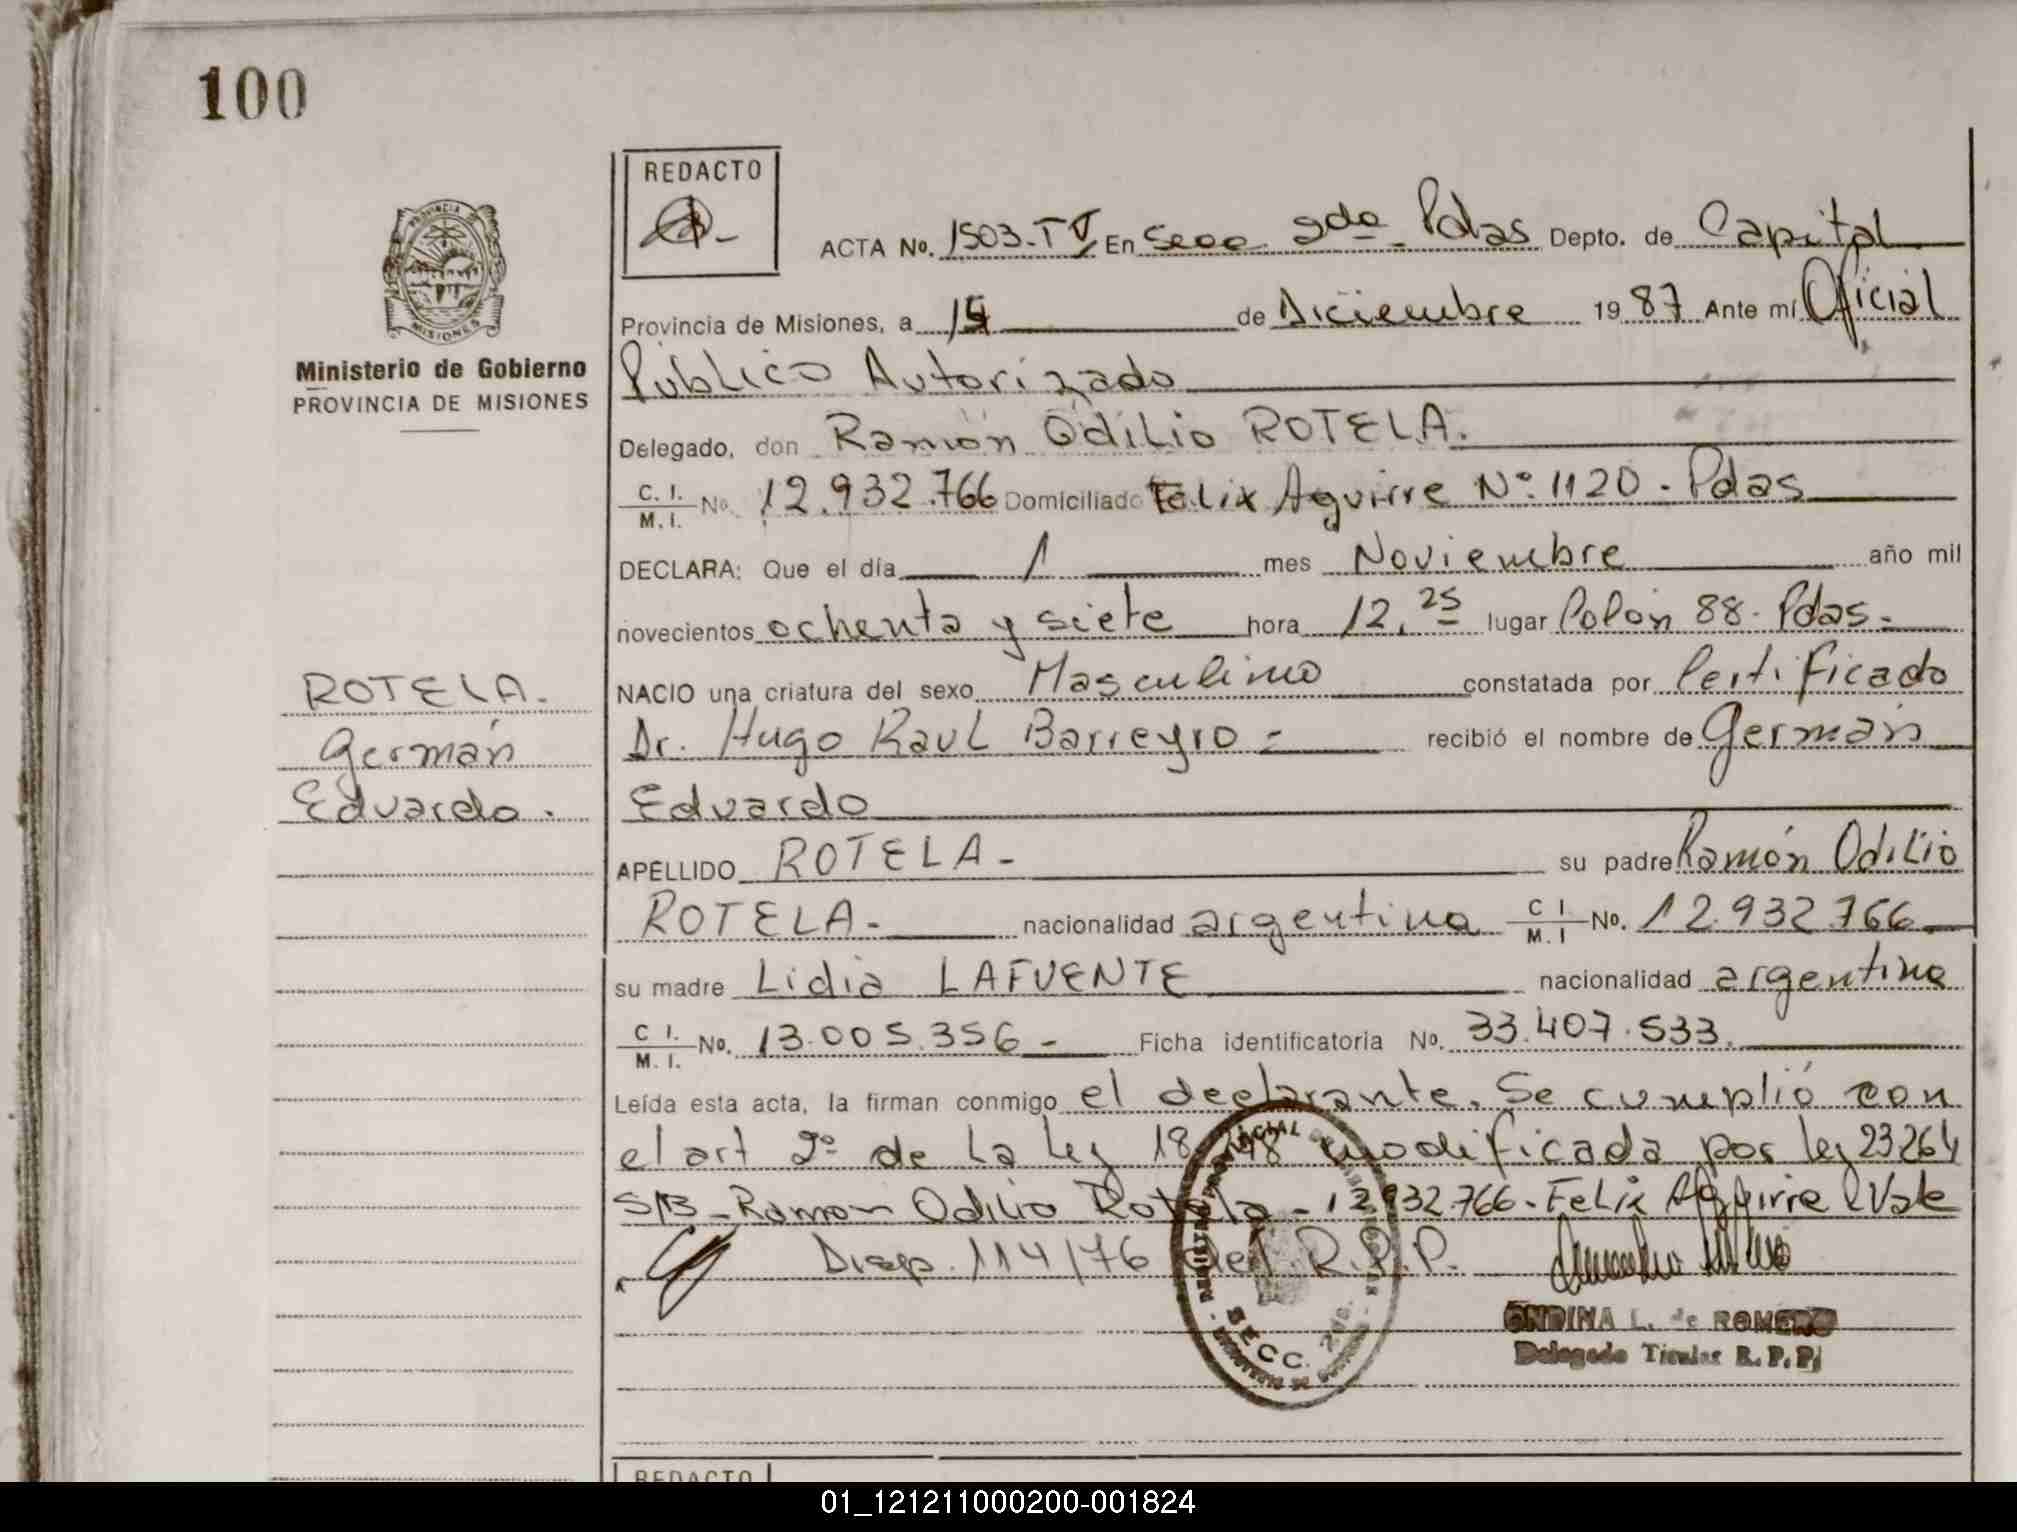 100
REDACTO
ACTA No. 1503-TV En Secc 2da Pdas Depto. de Capital
Provincia de Misiones, a de Diciembre 1987 Ante mí Oficial
Ministerio de Gobierno
PROVINCIA DE MISIONES
Público Autorizado
Delegado, don Ramón Odilio ROTELA.
C. I. / M. I. No. 12.932.766 Domiciliado Felix Aguirre Nº 1120 - Pdas
DECLARA: Que el día 1 mes Noviembre año mil
novecientos ochenta y siete hora 12,25 lugar Colón 88- Pdas-
ROTELA.
NACIO una criatura del sexo Masculino constatada por Certificado
Germán
Dr. Hugo Raul Barreyro = recibió el nombre de Germán
Eduardo.
Eduardo
APELLIDO ROTELA - su padre Ramón Odilio
ROTELA - nacionalidad argentina C I / M. I No. 12.932.766
su madre Lidia LAFUENTE nacionalidad argentina
C I. / M. I. No. 13.005.356 - Ficha identificatoria No. 33.407.533.
Leída esta acta, la firman conmigo el declarante. Se cumplió con
el art 2º de la ley 18 248 modificada por ley 23264
S/B - Ramon Odilio Rotela - 12.932.766 - Felix Aguirre Vale
Disp. 114/76 del R.P.P.
REGISTRO PROVINCIAL DE
SECC. 2da.
ONDINA L. de ROMERO
Delegado Titular R.P.P.
REDACTO
01_121211000200-001824